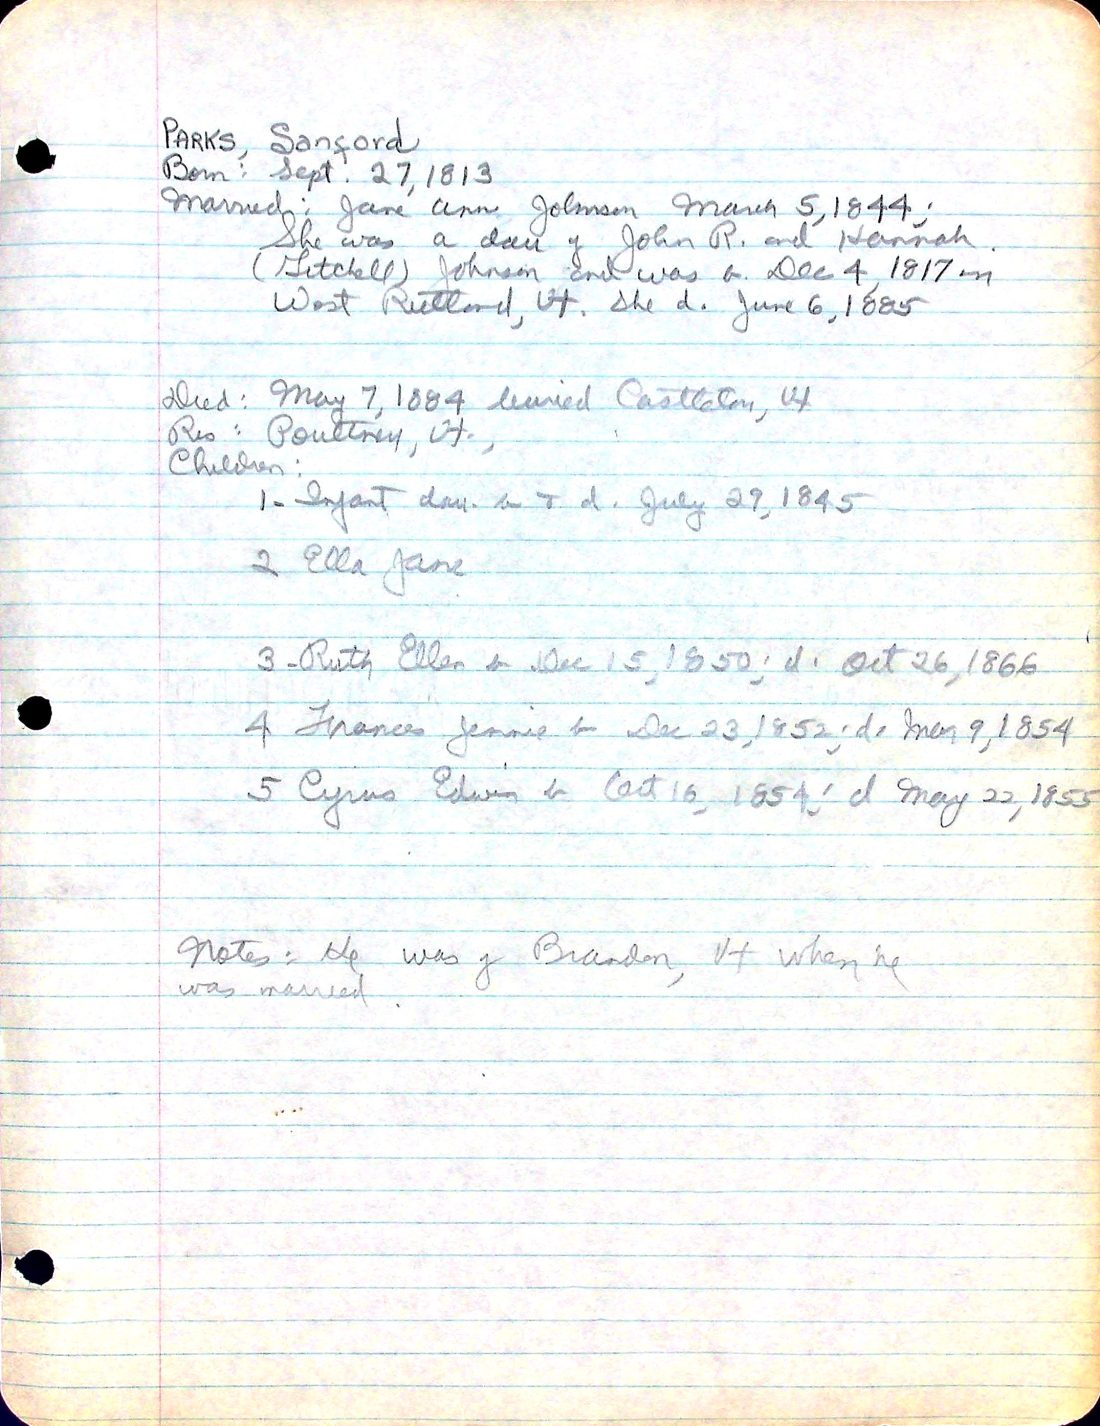 PARKS, Sanford
Born: Sept. 27, 1813
Married: Jane Ann Johnson March 5, 1844;
She was a dau of John R. and Hannah
(Getchell) Johnson and was b. Dec 4, 1817 in
West Rutland, Vt. She d. June 6, 1885
Died: May 7, 1884 buried Castleton, Vt
Res: Poultney, Vt.,
Children:
1- Infant dau. b & d. July 29, 1845
2 Ella Jane
3 - Ruth Ellen b Dec 15, 1850; d. Oct 26, 1866
4 Frances Jennie b Dec 23, 1852; d. Mar 9, 1854
5 Cyrus Edwin b Oct 16, 1854; d May 22, 1855
Notes: He was of Brandon, Vt when he
was married.